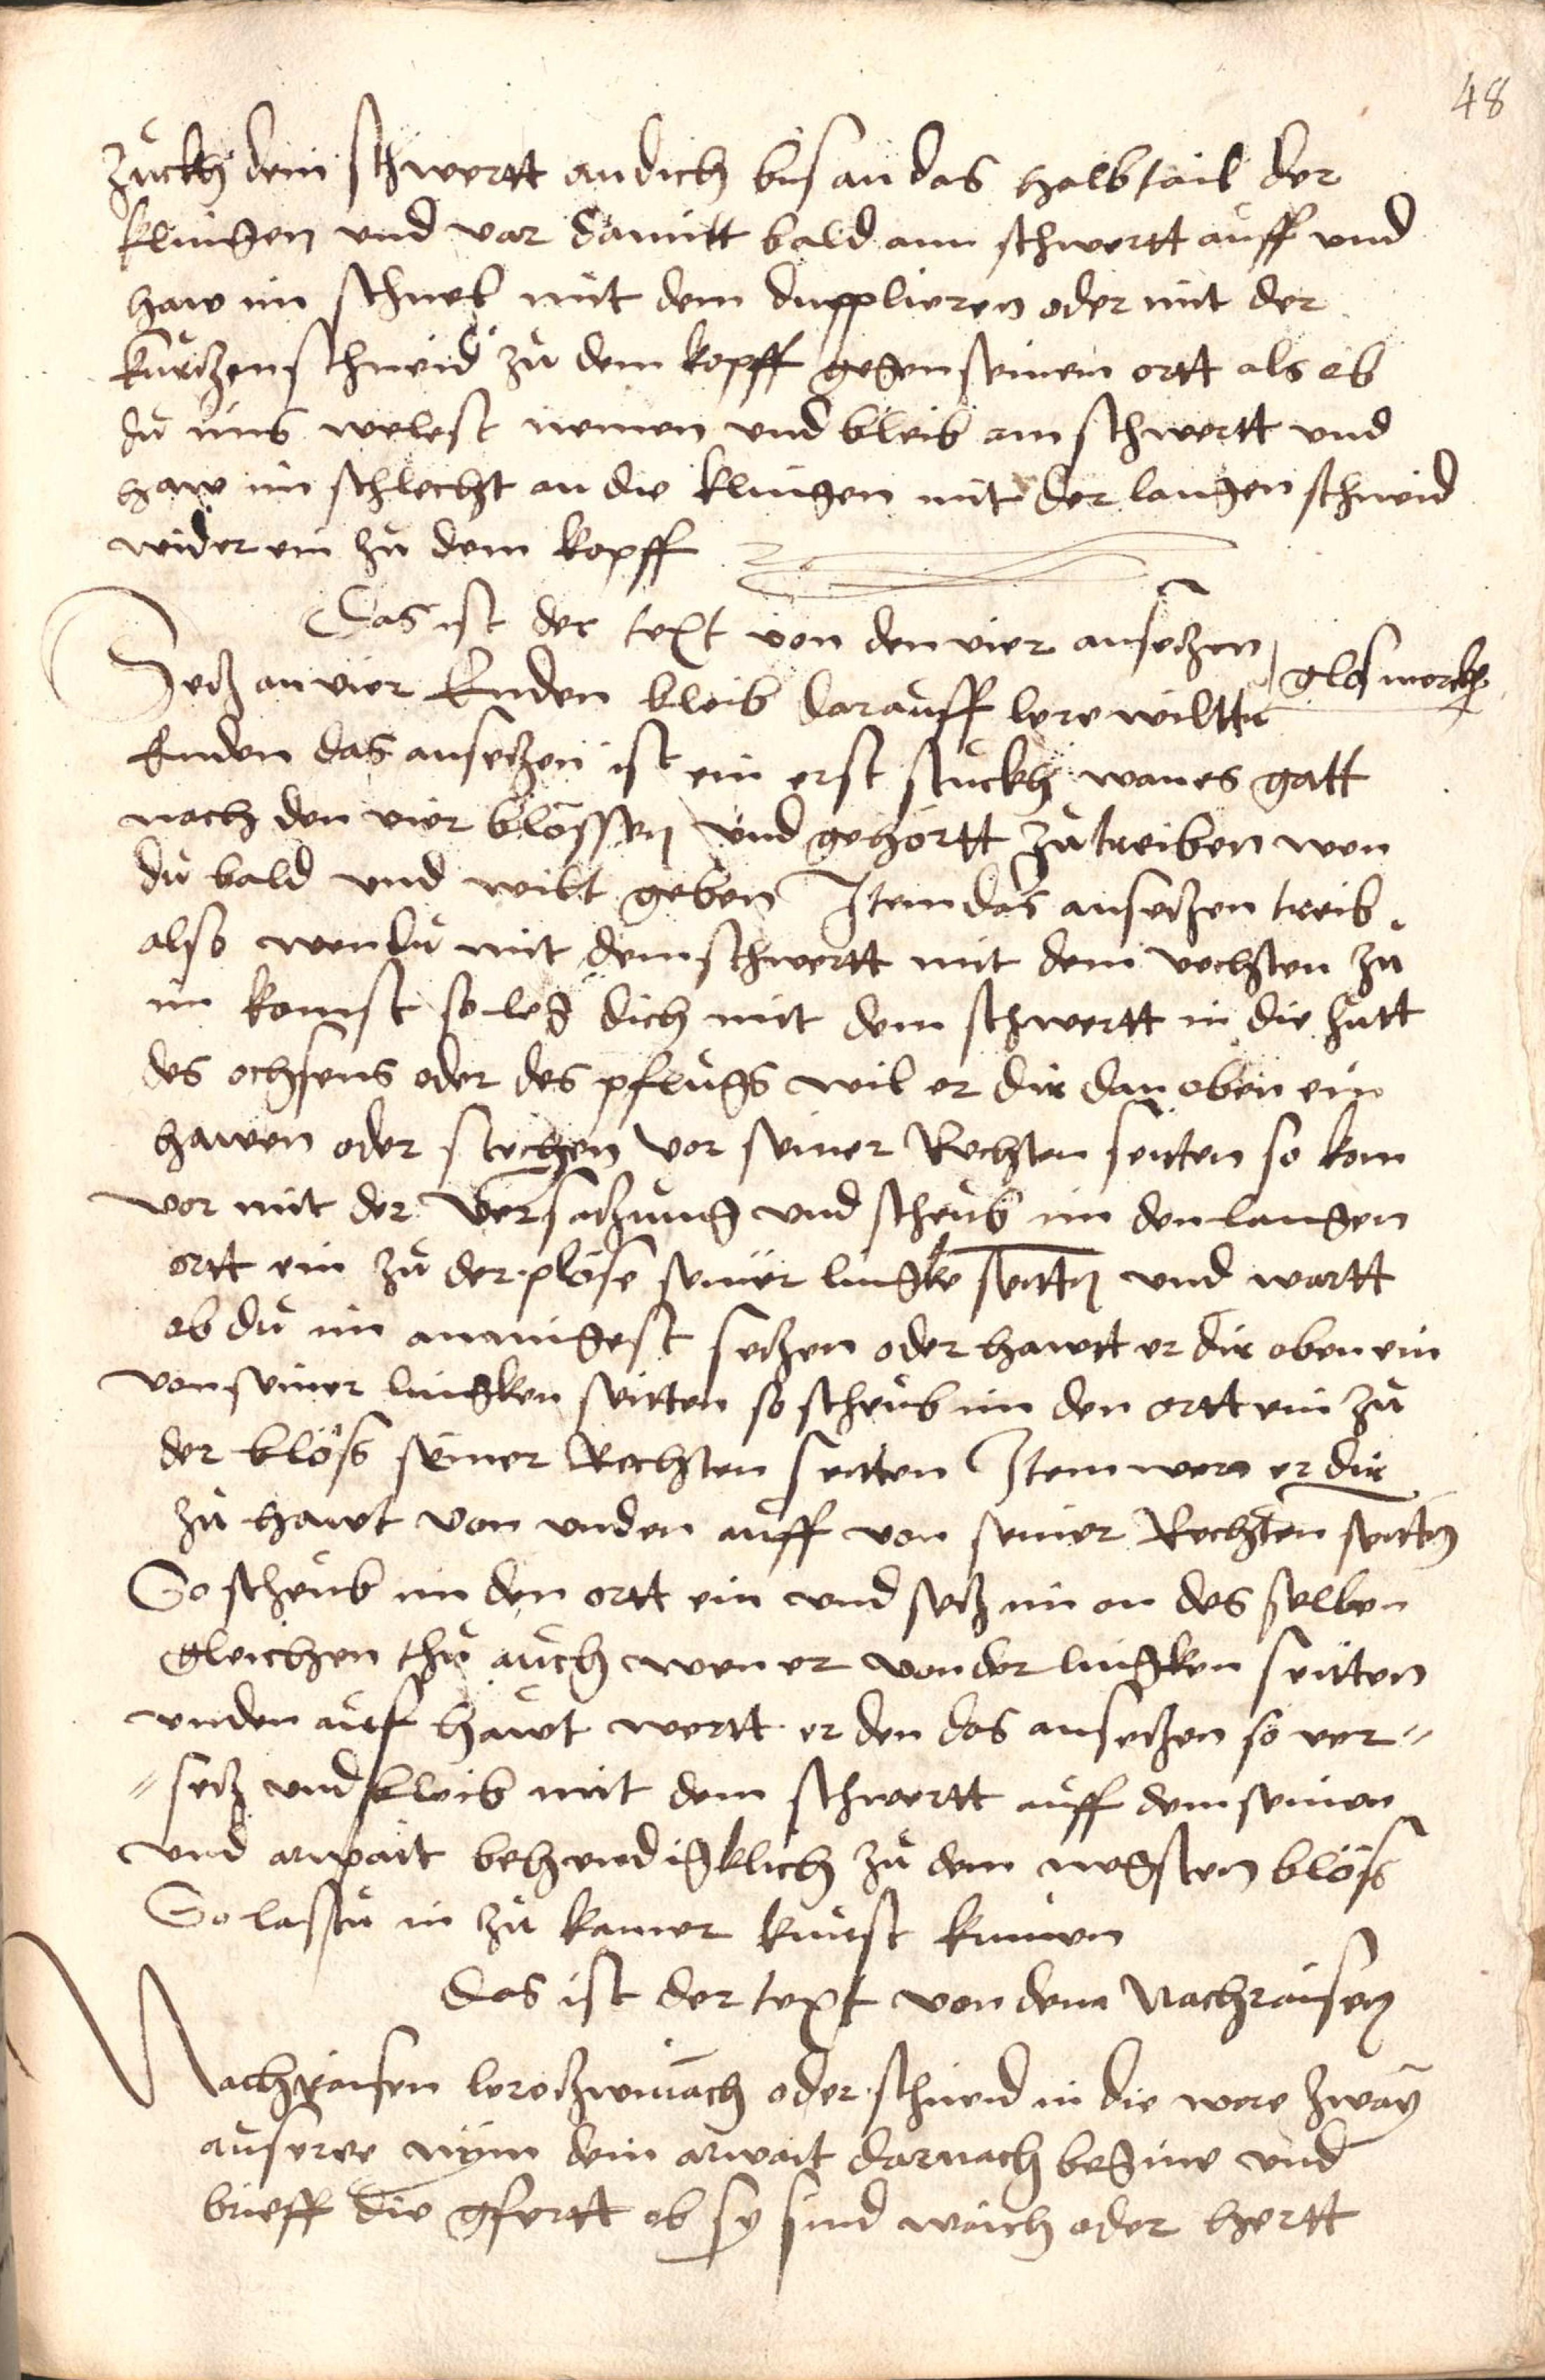 48
zuckh dein schwertt an dich bis an das halbtail der
klingen und var damitt bald am schwertt auff und
haw im schnel mit dem dupplieren oder mit der
kurczen schneid zu dem kopff gegen seinem ortt als ob
du uns welest nemen und bleib am schwertt und
haw im schlecht an die klingen mit der langen schneid
wider ein zu dem kopff
Das ist der text von den vier anseczen
Secz an vier Enden bleib darauff lere wiltu glos merckh
Enden das anseczen ist ein erst stuckh wan es gatt
nach den vier blössen und gehortt zu treiben wen
du bald und wilt geben Item das anseczen treib
also wen du mit dem schwertt mit dem vechten zu
im komst so leg dich mit dem schwertt in die hutt
des ochsens oder des pflugs wil er dir dan oben ein
hawen oder stechen vor seiner Rechten seitten so kom
vor mit der versaczung und scheub im den langen
ortt ein zu der plöse seiner lingke seitten und wartt
ob du im anmigest seczen oder hawtt er dir oben ein
von seiner lingken seitten so scheub im den ortt ein zu
der blöss seiner Rechten seitten Item wen er dir
zu hawt von unden auff von seiner Rechten seitten
So scheub im den ortt ein und secz im an des selben
gleichen thu auch wen er von der lingken seitten
unden auf hawt wertt er den das anseczen so ver=
=secz und bleib mit dem schwertt auff dem seinen
und arwait behendigklich zu dem negsten blöss
So lastu in zu kainer kunst kumen
Das ist der text von dem Nachraisen
Nachraisen lere zwinach oder schneid in die were zway
ausere nym dein arwait darnach begine und
brieff die gfertt ob sy sind waich oder hertt